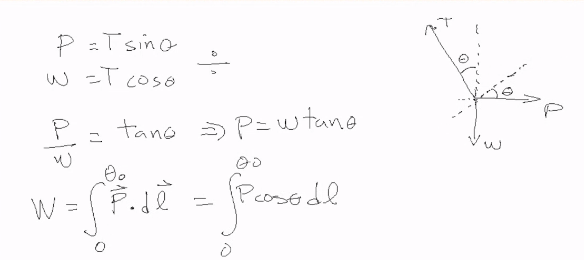 P = T sinθ
w = T cosθ
÷
P/w = tanθ ⇒ P = w tanθ
W = ∫₀^θ₀ P⃗ . dl⃗ = ∫₀^θ₀ P cosθ dl
T
θ
θ
P
w